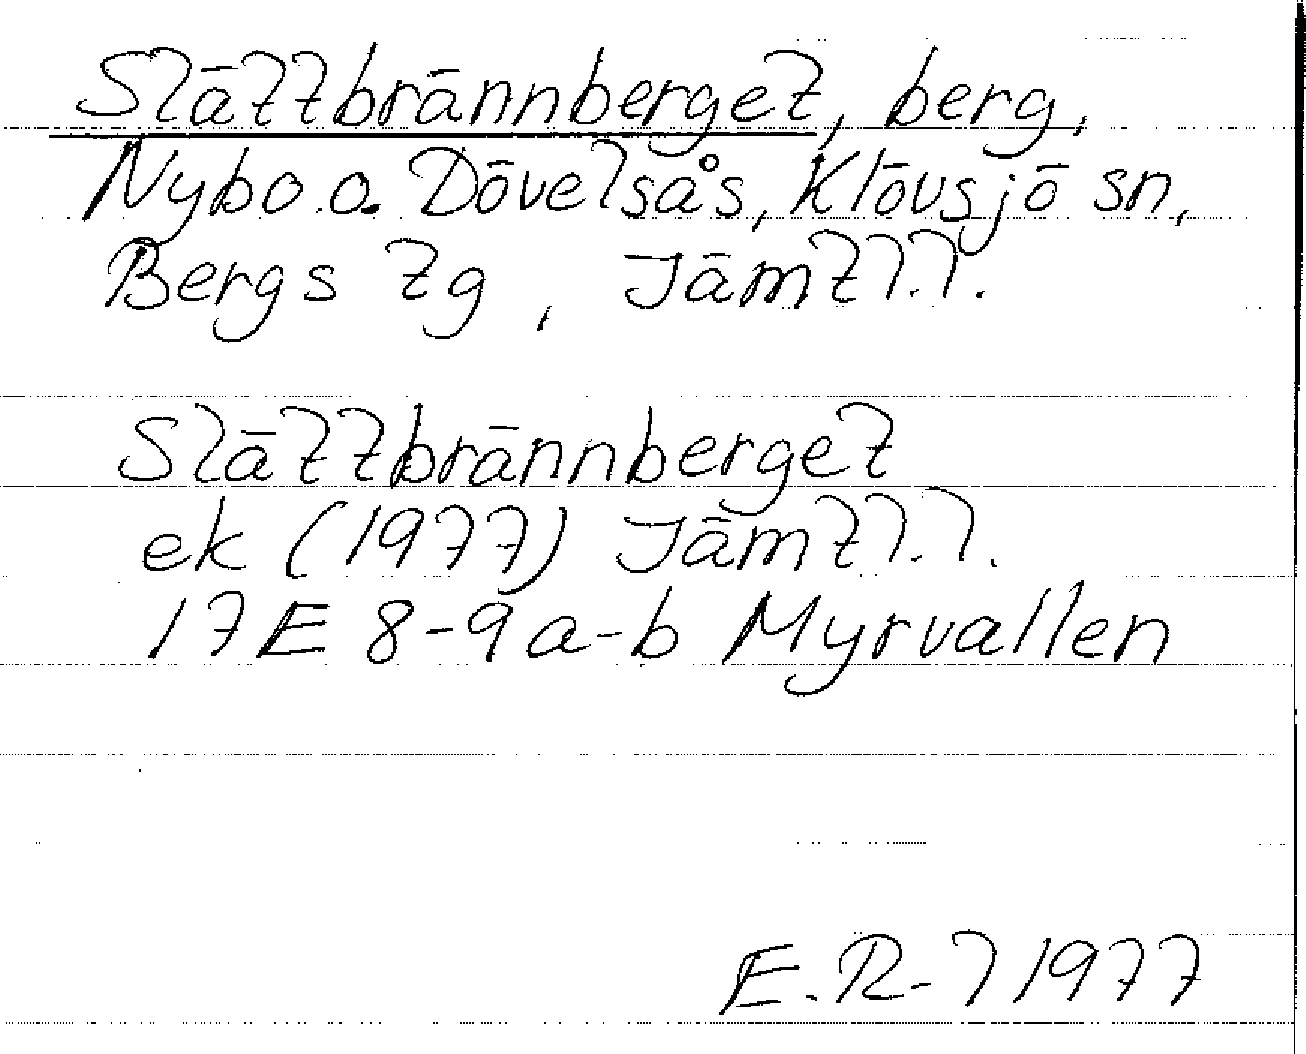 Slättbrännberget, berg,
Nybo o. Dövelsås, Klövsjö sn,
Bergs tg, Jämtl.l.
Slättbrännberget
ek (1977) Jämtl.l.
17E 8-9a-b Myrvallen
E.R-l 1977